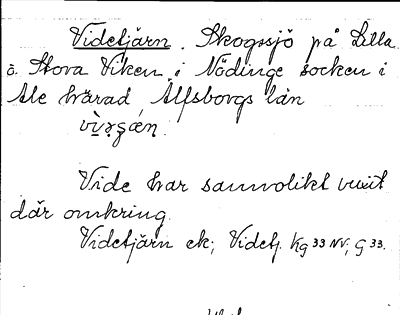 Videtjärn. Skogssjö på Lilla
o. Stora Viken i Nödinge socken i
Ale härad Älfsborgs län

Vide har sannolikt vuxit
där omkring.
Videtjärn ek; Videtj. Kg 33 NV; G 33.